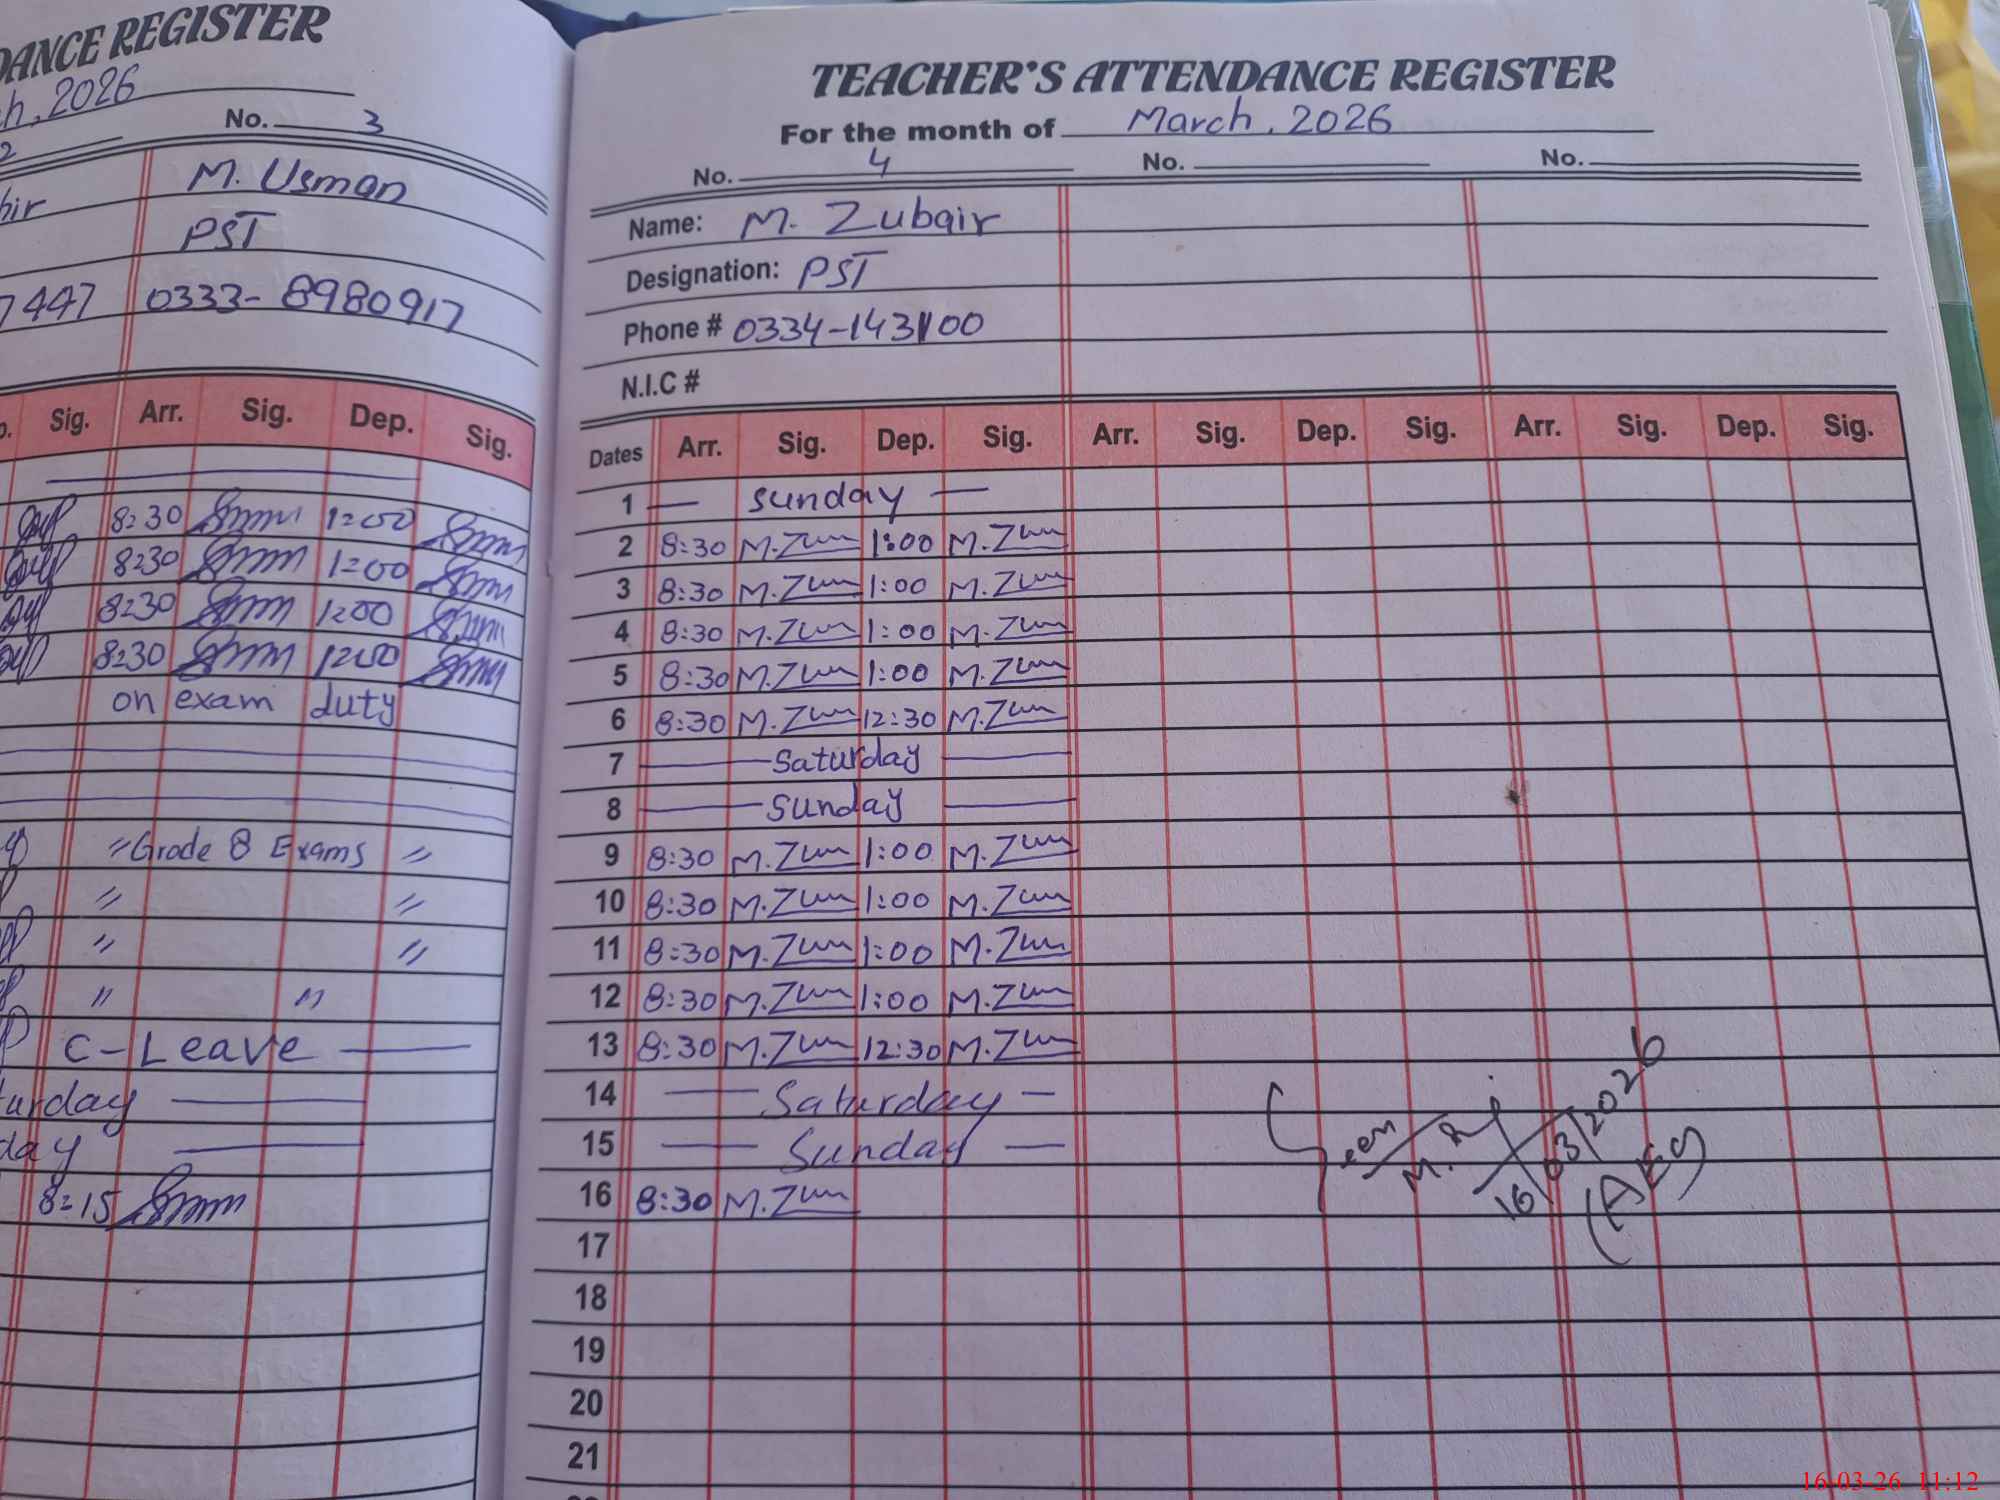 DANCE REGISTER
ch, 2026
No. 3
2
bir M. Usman
PST
7447 0333-8980917
p. Sig. Arr. Sig. Dep. Sig.
8:30 1200
8:30 1200
8:30 1200
8:30 1200
on exam duty
"Grade 8 Exams "
" "
" "
" "
C-Leave
turday
day
8:15
TEACHER'S ATTENDANCE REGISTER
For the month of March, 2026
No. 4 No. No.
Name: M. Zubair
Designation: PST
Phone # 0334-143100
N.I.C #
Dates Arr. Sig. Dep. Sig. Arr. Sig. Dep. Sig. Arr. Sig. Dep. Sig.
1 — Sunday —
2 8:30 M.Zum 1:00 M.Zum
3 8:30 M.Zum 1:00 M.Zum
4 8:30 M.Zum 1:00 M.Zum
5 8:30 M.Zum 1:00 M.Zum
6 8:30 M.Zum 12:30 M.Zum
7 — Saturday —
8 — Sunday —
9 8:30 M.Zum 1:00 M.Zum
10 8:30 M.Zum 1:00 M.Zum
11 8:30 M.Zum 1:00 M.Zum
12 8:30 M.Zum 1:00 M.Zum
13 8:30 M.Zum 12:30 M.Zum
14 — Saturday —
15 — Sunday —
16 8:30 M.Zum
17
18
19
20
21
Seen
16/03/2026
16-03-26 11:12